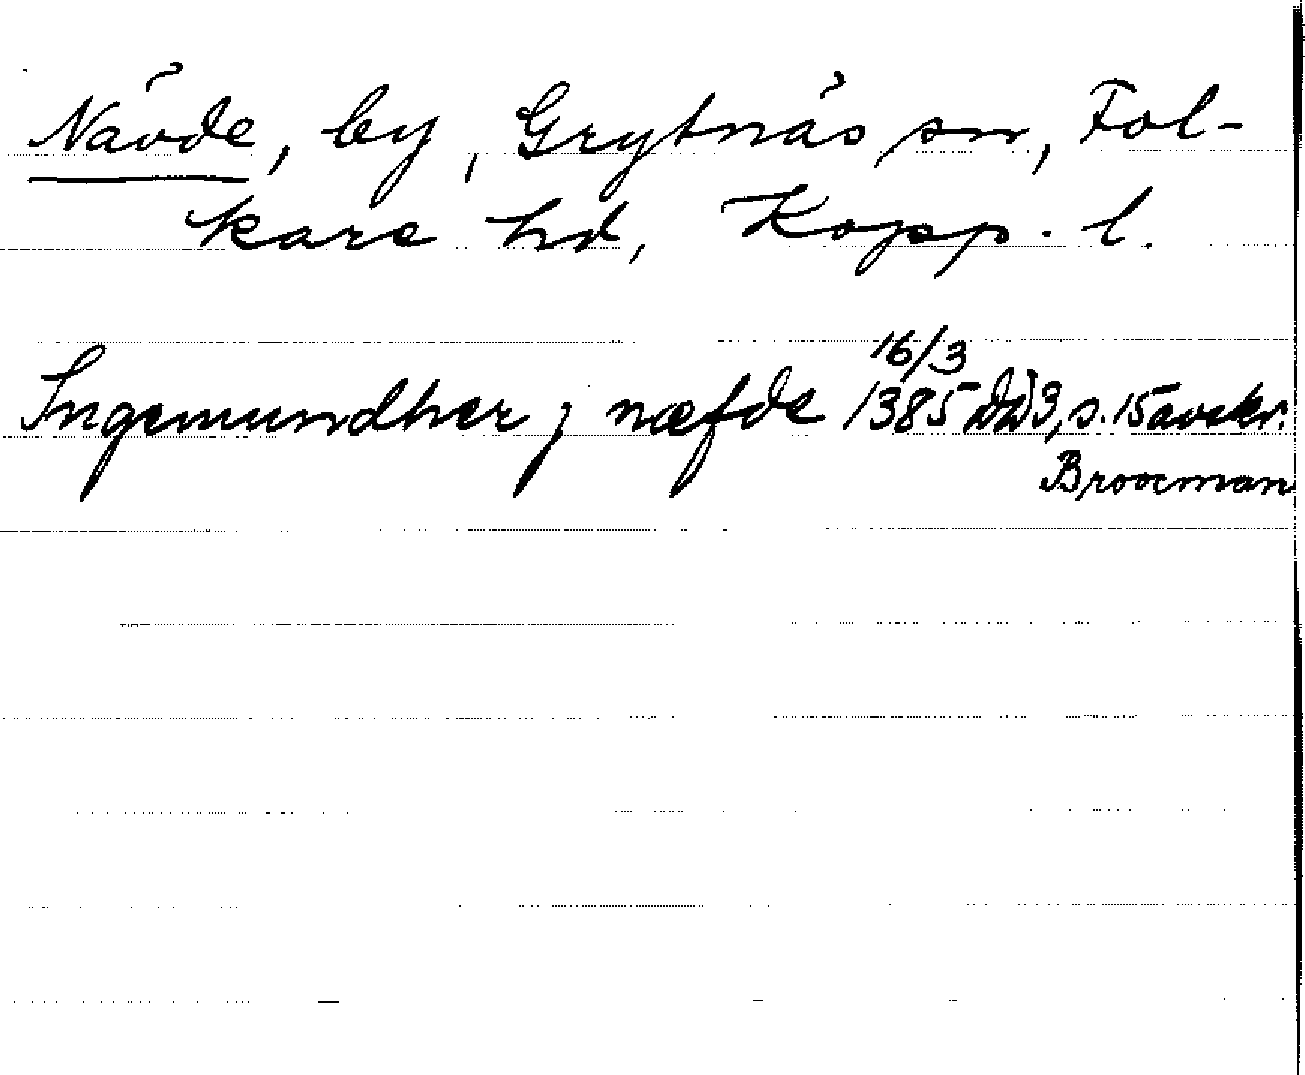 Nävde, by, Grytnäs sn, Fol-
kare hd, Kopp. l.
16/3
Ingemundher j næfde 1385 DD 3, s. 15 avskr.
Broocman